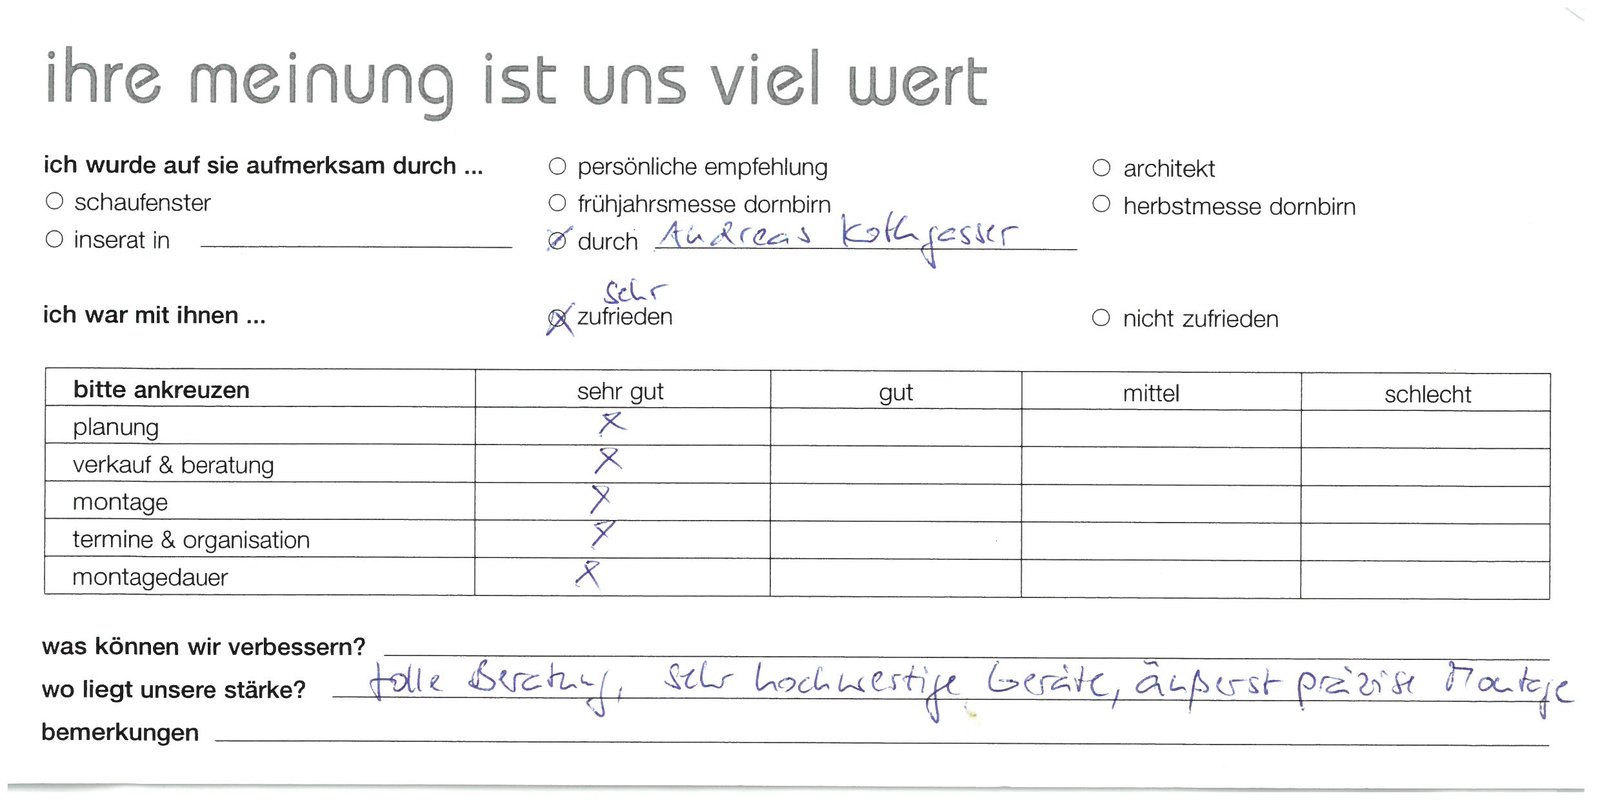 ihre meinung ist uns viel wert
ich wurde auf sie aufmerksam durch ... persönliche empfehlung architekt
schaufenster frühjahrsmesse dornbirn herbstmesse dornbirn
inserat in durch Andreas Kothgasser
sehr
ich war mit ihnen ... zufrieden nicht zufrieden
bitte ankreuzen sehr gut gut mittel schlecht
planung x
verkauf & beratung x
montage x
termine & organisation x
montagedauer x
was können wir verbessern?
wo liegt unsere stärke? tolle Beratung, sehr hochwertige Geräte, äußerst präzise Montage
bemerkungen